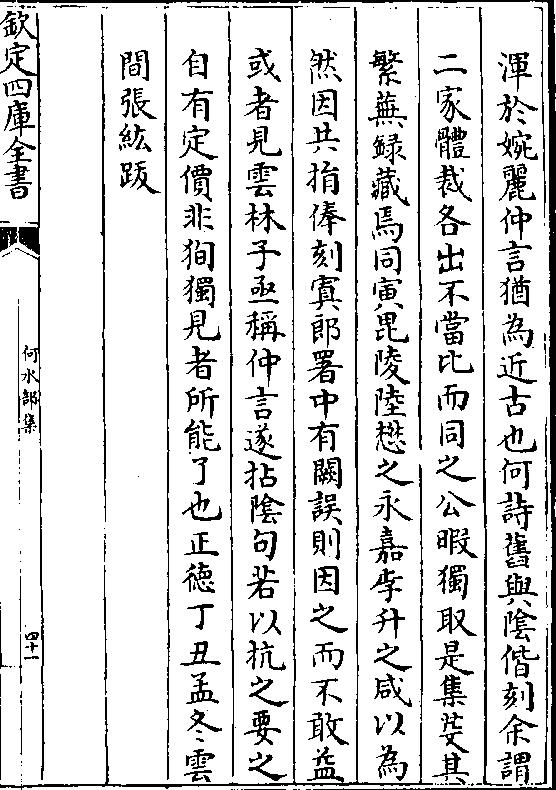 渾於婉麗仲言猶為近古也何詩舊與陰偕刻余謂
二家體裁各出不當比而同之公暇獨取是集芟其
繁蕪録藏焉同寅毘陵陸懋之永嘉李升之咸以為
然因共捐俸刻寘郎署中有闕誤則因之而不敢益
或者見雲林子亟稱仲言遂拈陰句若以抗之要之
自有定價非狥獨見者所能了也正德丁丑孟冬雲
間張紘跋
欽定四庫全書
何水部集
四十一